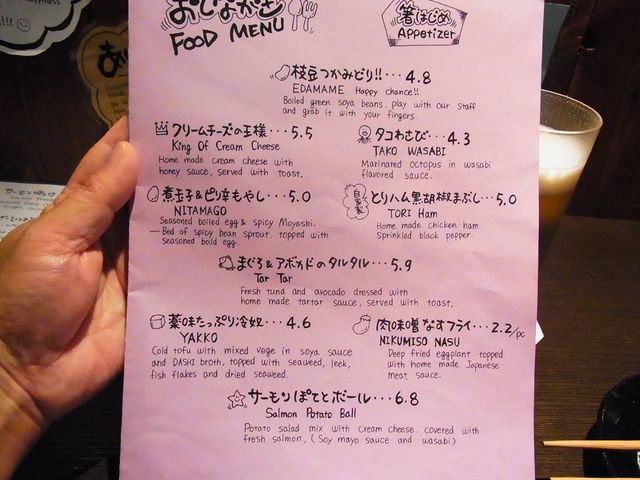 おしながき
FOOD MENU
箸はじめ
Appetizer
枝豆つかみどり!!・・・4.8
EDAMAME Happy chance!!
Boiled green soya beans, play with our staff
and grab it with your fingers.
クリームチーズの王様・・・5.5
King Of Cream Cheese
Home made cream cheese with
honey sauce, served with toast.
タコわさび・・・4.3
TAKO WASABI
Marinated octopus in wasabi
flavored sauce.
煮玉子&ピリ辛もやし・・・5.0
NITAMAGO
Seasoned boiled egg & spicy Moyashi.
Bed of spicy bean sprout, topped with
seasoned boild egg.
自家製
とりハム黒胡椒まぶし・・・5.0
TORI Ham
Home made chicken ham
Sprinkled black pepper.
まぐろ&アボカドのタルタル・・・5.9
Tar Tar
Fresh tuna and avocado dressed with
home made tartar sauce, served with toast.
薬味たっぷり冷奴・・・4.6
YAKKO
Cold tofu with mixed vege in soya sauce
and DASHI broth, topped with seaweed, leek,
fish flakes and dried seaweed.
肉味噌なすフライ・・・2.2/pc
NIKUMISO NASU
Deep fried eggplant topped
with home made Japanese
meat sauce.
サーモンぽてとボール・・・6.8
Salmon Potato Ball
Potato salad mix with cream cheese covered with
fresh salmon, (Soy mayo sauce and wasabi)